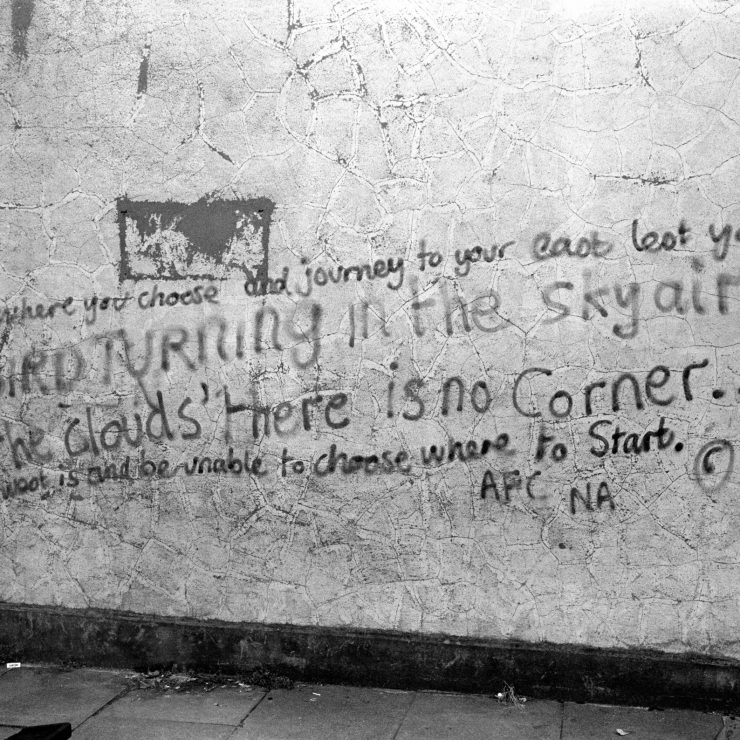 where you choose and journey to your east lest y
BIRD TURNING in the sky air
the clouds' there is no Corner..
west is and be unable to choose where to Start. ©
AFC NA